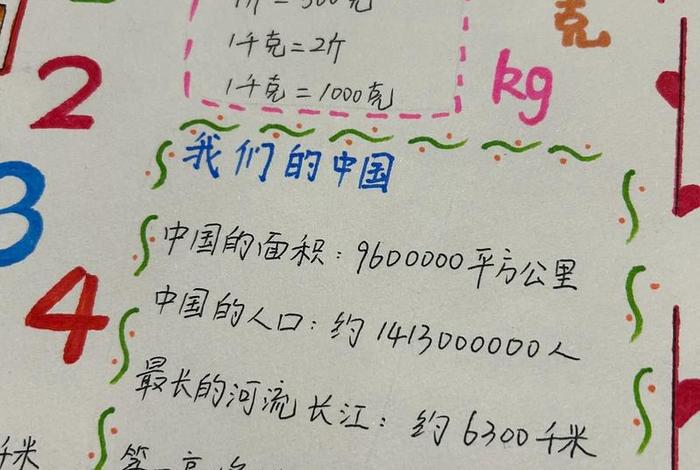 1斤=500克
1千克=2斤
1千克=1000克
克
kg
2
我们的中国
3
中国的面积：9600000平方公里
4
中国的人口：约1413000000人
最长的河流长江：约6300千米
千米